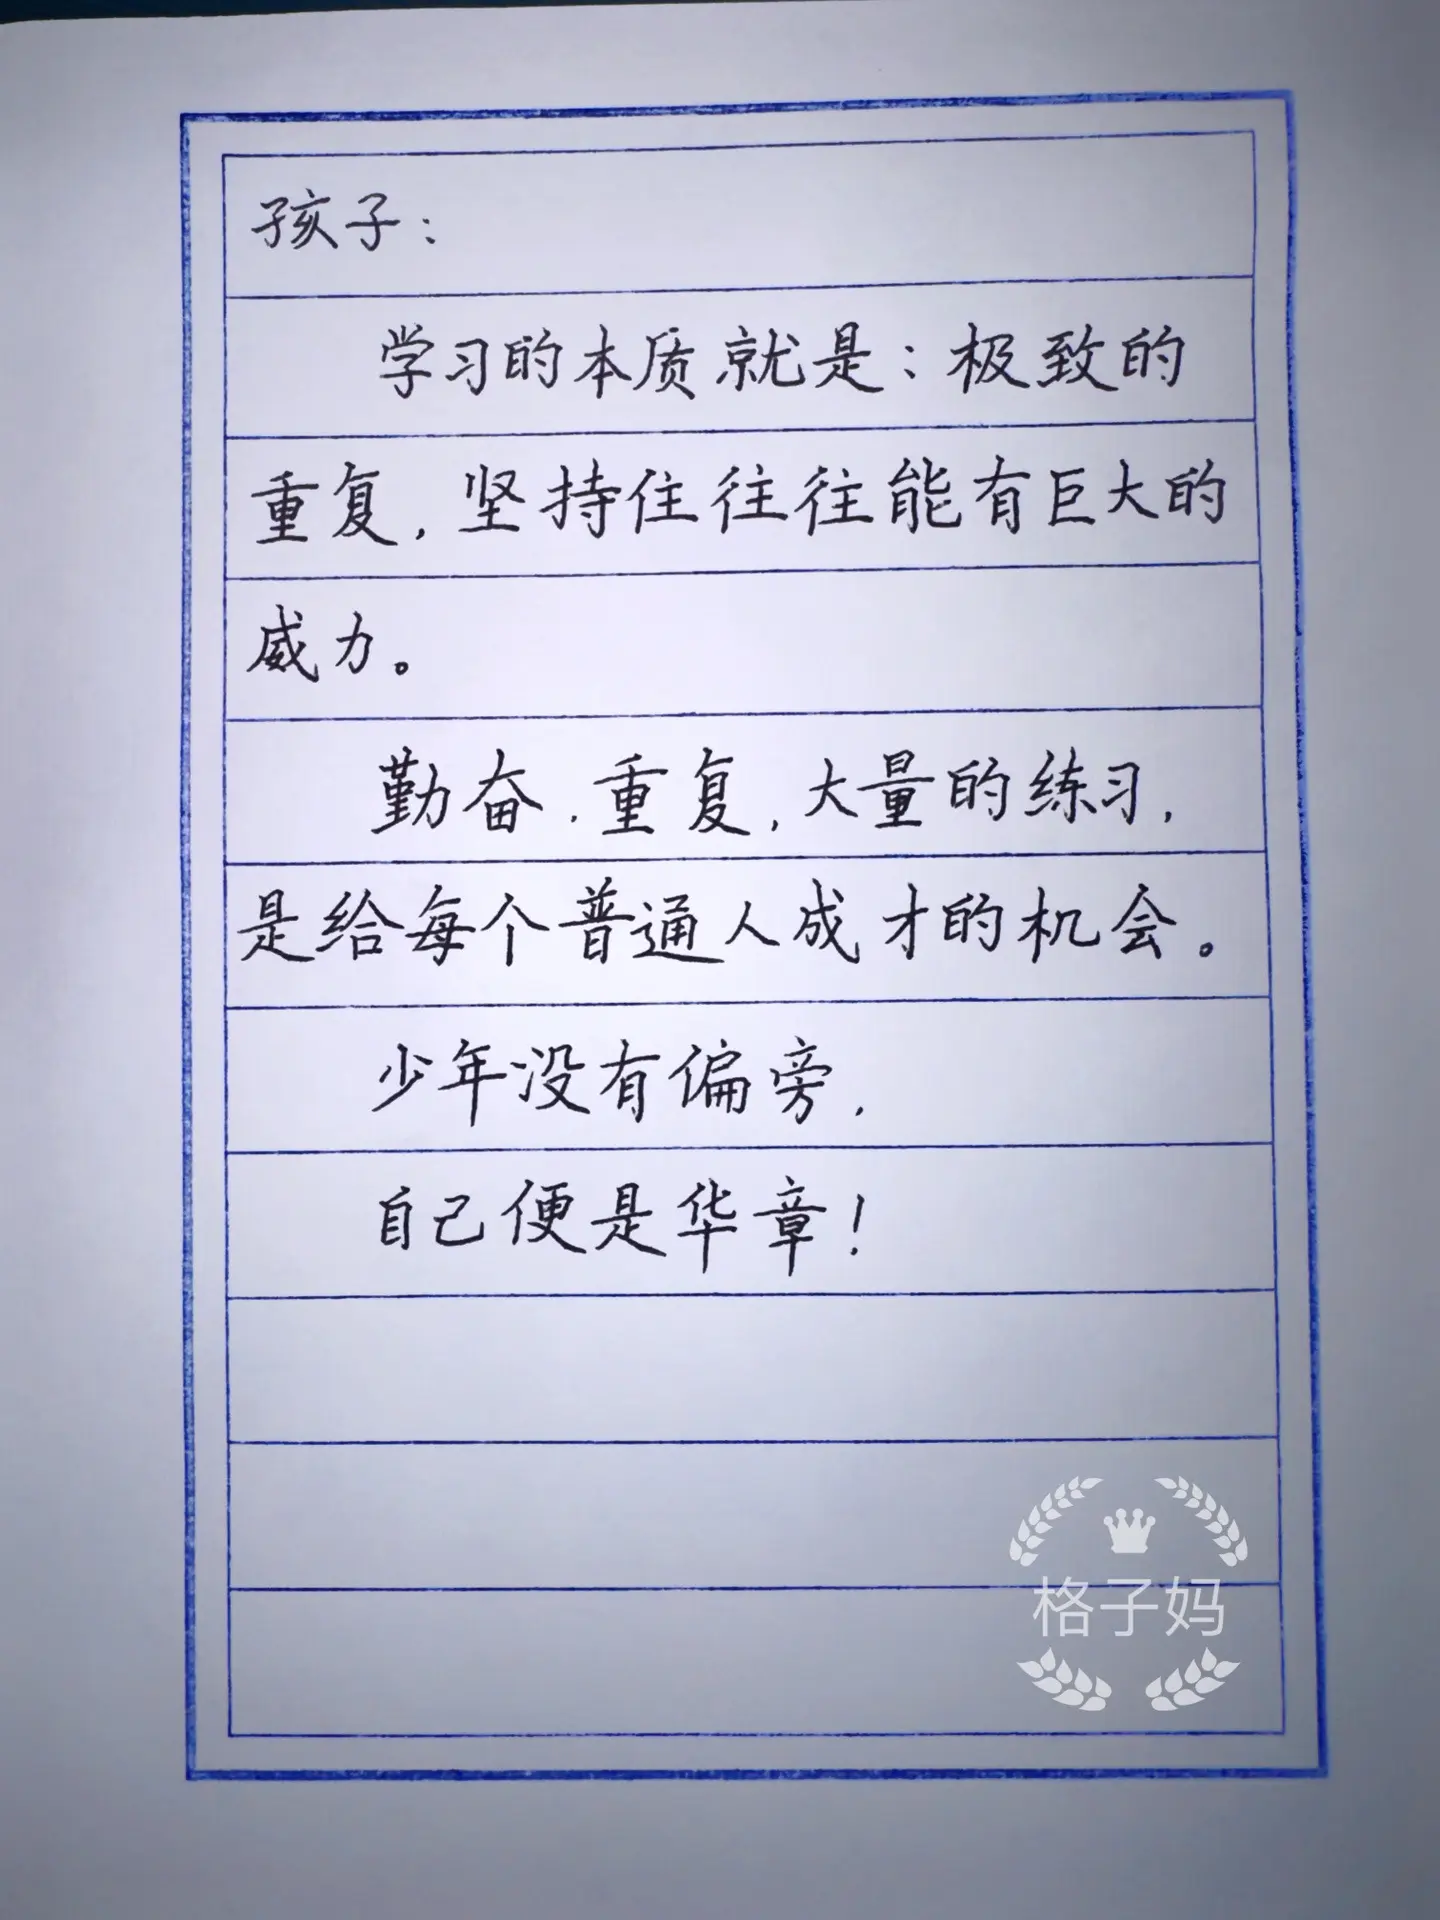 孩子：
学习的本质就是：极致的
重复，坚持住往往能有巨大的
威力。
勤奋，重复，大量的练习，
是给每个普通人成才的机会。
少年没有偏旁，
自己便是华章！
格子妈